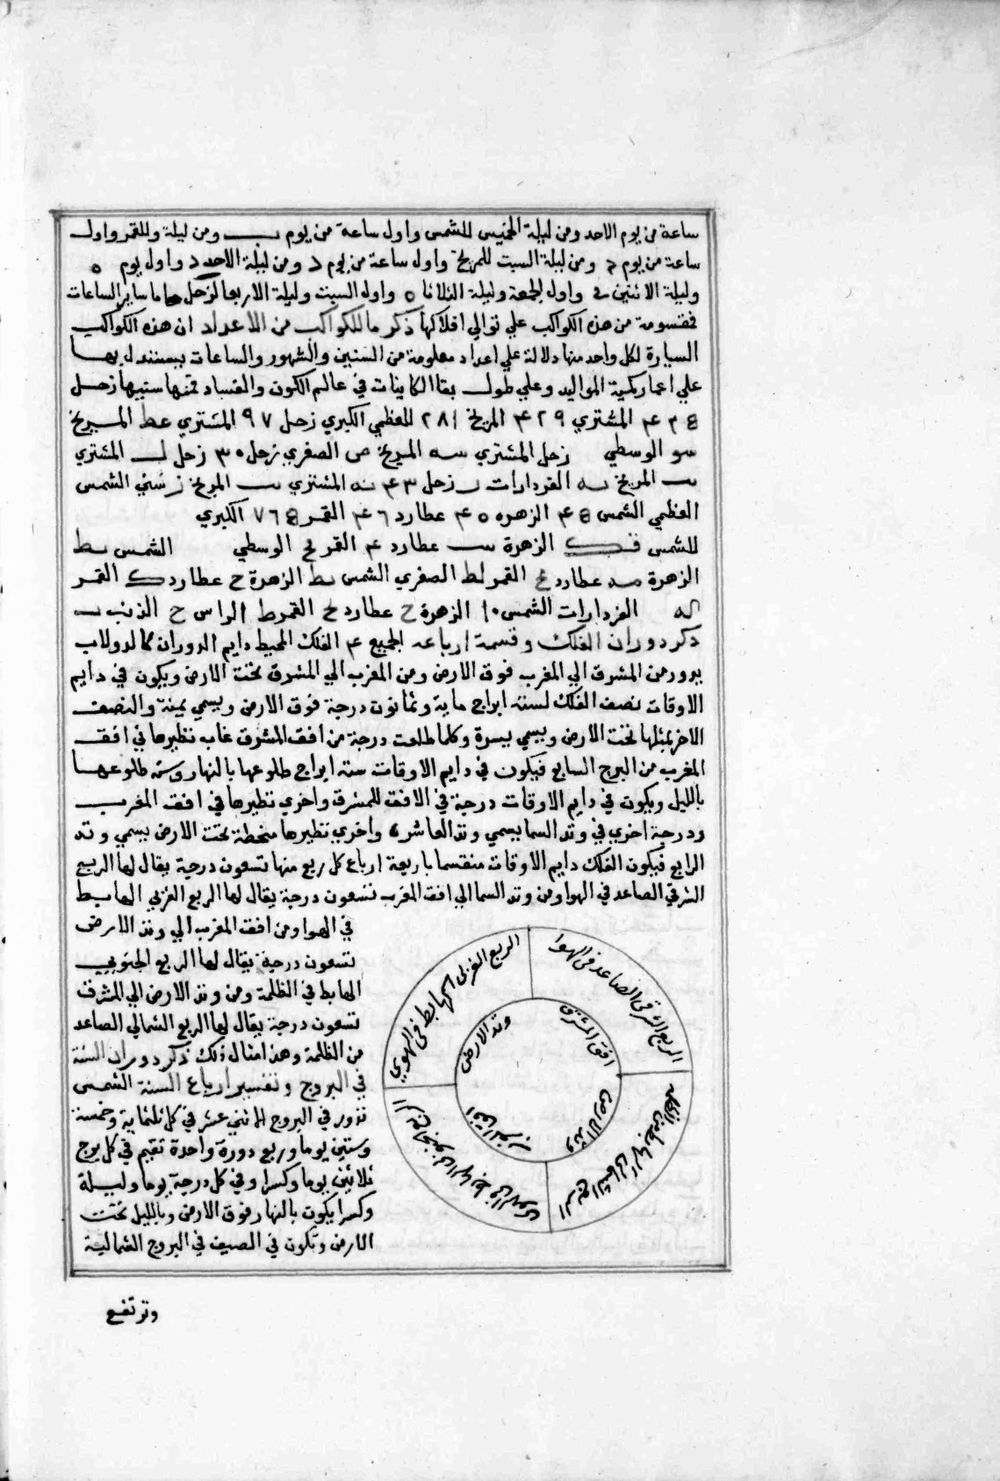 ساعة من يوم الاحد ومن ليلة الخميس للشمس واول ساعة من يوم ب ومن ليلة وللقمر واول
ساعة من يوم ومن ليلة السبت للمريخ واول ساعة من يوم د ومن ليلة الاحد د واول يوم ه
وليلة الاثنين واول الجمعة وليلة الثلاثا ه واول السبت وليلة الاربعا لزحل واما ساير الساعات
فمقسومة من هذه الكواكب علي توالي افلاكها ذكر ما للكواكب من الاعداد ان هذه الكواكب
السيارة لكل واحد منها دلالة علي اعداد معلومة من السنين والشهور والساعات يستدل بها
علي اعمار كمية المواليد وعلي طول بقا الكاينات في عالم الكون والفساد فمنها سنيها زحل
المشتري ٤٢٩ المريخ ٢٨١ للعظمي الكبري زحل ٩٧ المشتري عط المريخ
سو الوسطي زحل المشتري سه المريخ ص الصغري زحل ٣٠ زحل ل المشتري
المريخ الفردارات زحل المشتري المريخ ز سني الشمس
العظمي الشمس الزهره عطارد القمر الكبري
للشمس قك الزهرة عطارد القمر الوسطي الشمس نط
الزهرة مد عطارد القمر لط الصغري الشمس نط الزهرة ح عطارد ك القمر
كه الفردارات الشمس ١٠ الزهرة ح عطارد القمر ط الراس ح الذنب ب
ذكر دوران الفلك وقسمة ارباعه الجميع ٤ الفلك المحيط دايم الدوران كالدولاب
يدور من المشرق الي المغرب فوق الارض ومن المغرب الي المشرق تحت الارض ويكون في دايم
الاوقات نصف الفلك لستة ابراج ماية وثمانون درجة فوق الارض ويسمي يمنة والنصف
الاخر بمثلها تحت الارض ويسمي يسرة وكلما طلعت درجة من افق المشرق غاب نظيرها في افق
المغرب من البرج السابع فيكون في دايم الاوقات ستة ابراج طلوعها بالنهار وستة طلوعها
بالليل ويكون في دايم الاوقات درجة في الافق للمشرق واخري نظيرها في افق المغرب
ودرجة اخري في وتد السما يسمي وتد العاشر واخري نظيرها منحطة تحت الارض يسمي وتد
الرابع فيكون الفلك دايم الاوقات منقسما باربعة ارباع كل ربع منها تسعون درجة يقال لها الربع
الشرقي الصاعد في الهوا ومن وتد السما الي افق المغرب تسعون درجة يقال لها الربع الغربي الهابط
في الهوا ومن افق المغرب الي وتد الارض
تسعون درجة يقال لها الربع الجنوبي
الهابط في الظلمة ومن وتد الارض الي المشرق
تسعون درجة يقال لها الربع الشمالي الصاعد
من الظلمة وهذا مثال ذلك ذكر دوران السنة
في البروج وتفسير ارباع السنة الشمس
تدور في البروج الاثني عشر في كل ثلثماية وخمسة
وستين يوما وربع دورة واحدة تقيم في كل برج
ثلاثين يوما وكسرا وفي كل درجة يوما وليلة
وكسرا يكون بالنهار فوق الارض وبالليل تحت
الارض وتكون في الصيف في البروج الشمالية
الربع الشرقي الصاعد في الهوا
الربع الغربي الهابط في الهوي
افق المشرق
وتد الارض
وتد الارض
وترتفع